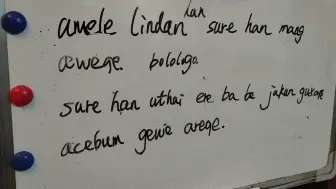 amele lindan han sure han mang
æwege bologo
sure han uthai ere ba be jakan gusone
acebum gewe arege.